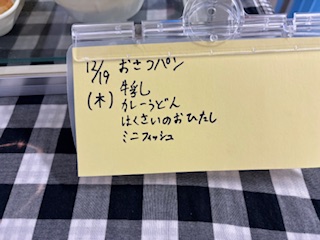 12/19 おさつパン
(木) 牛乳
カレーうどん
はくさいのおひたし
ミニフィッシュ